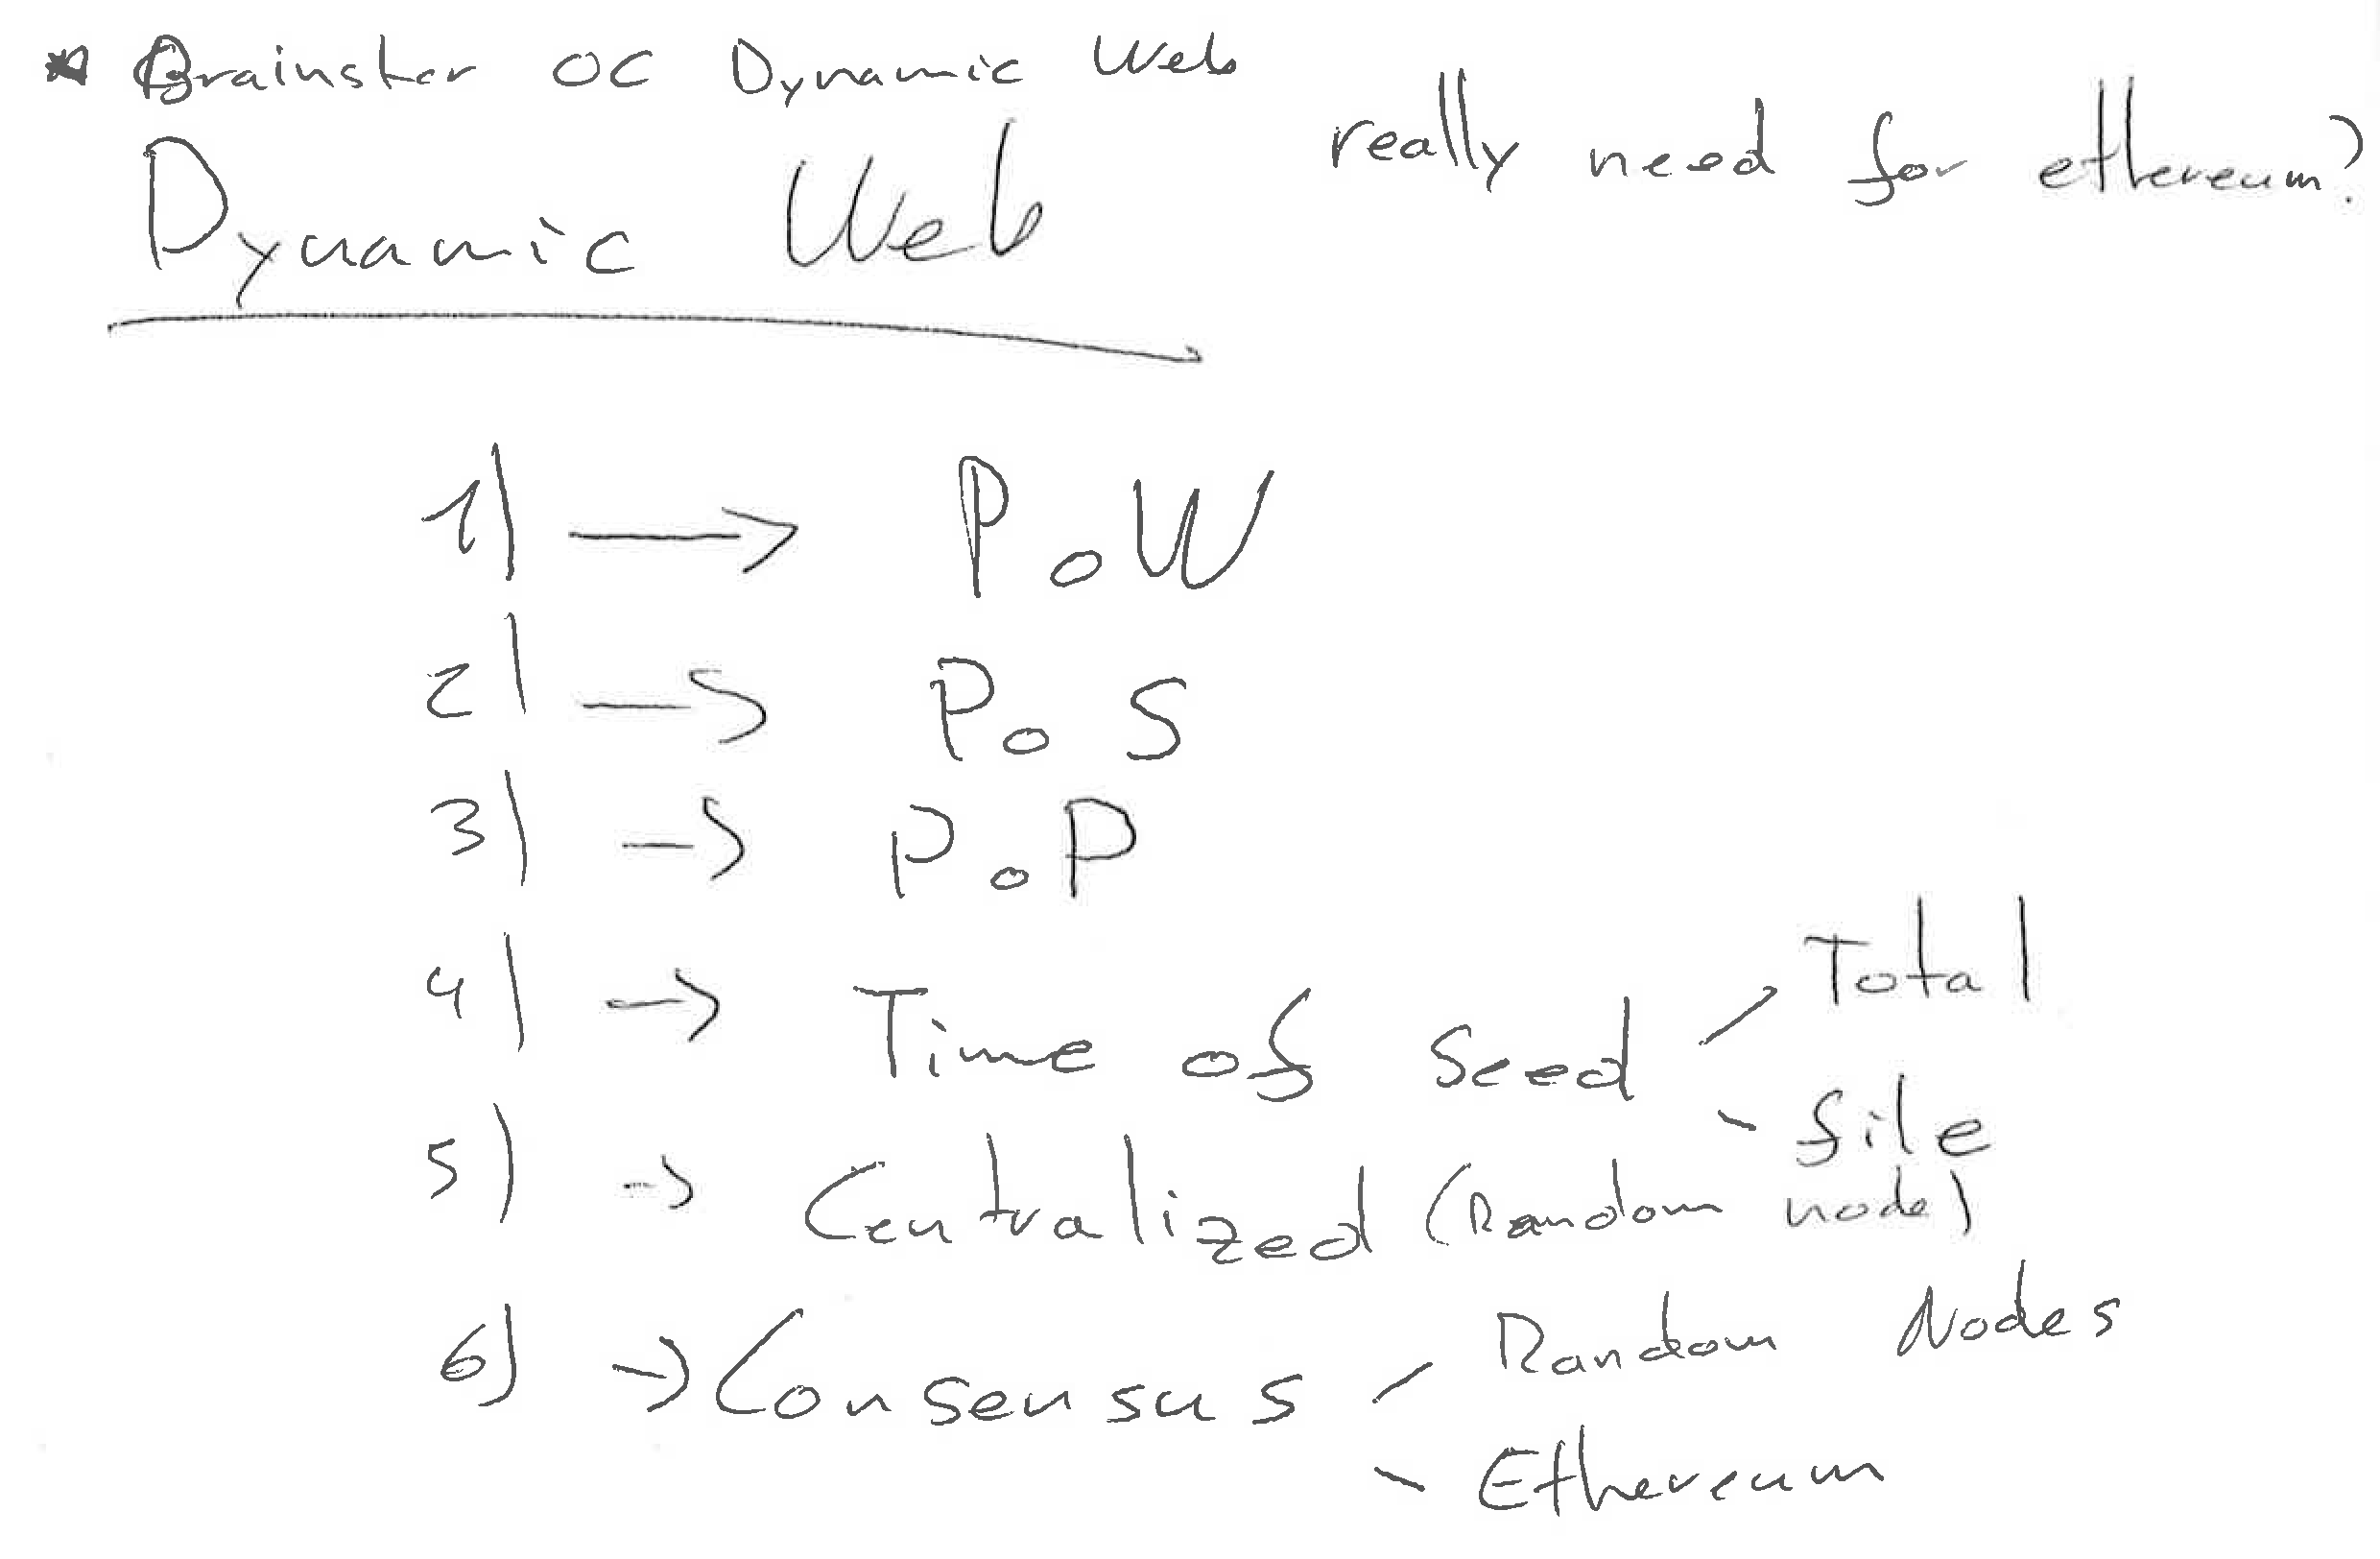 * Brainster OC Dynamic Web
really need for ethereum?
Dynamic Web
1) → PoW
2) → PoS
3) → PoP
4) → Time of seed / Total
- file
5) → Centralized (Random node)
6) → Consensus - Random Nodes
- Ethereum